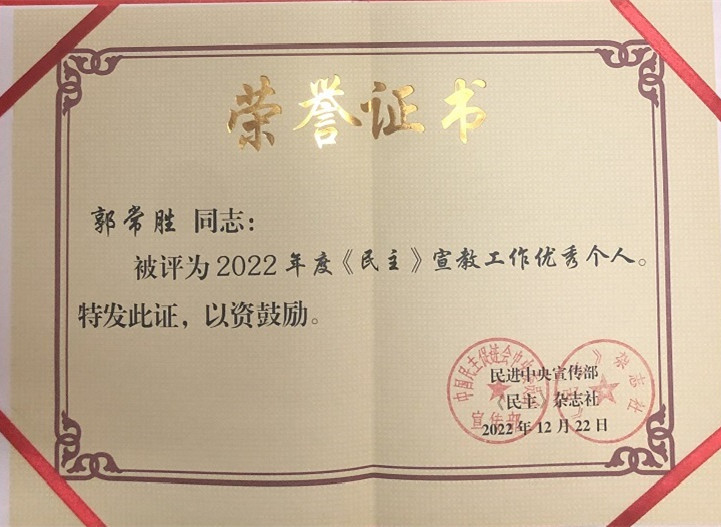 荣誉证书
郭常胜 同志：
被评为2022年度《民主》宣教工作优秀个人。
特发此证，以资鼓励。
民进中央宣传部
《民主》杂志社
2022年12月22日
宣传部
杂志社